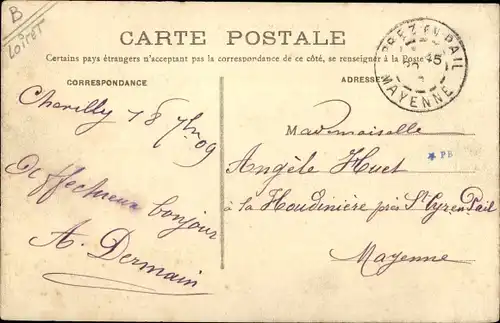 B
Loiret
CARTE POSTALE
Certains pays étrangers n'acceptant pas la correspondance de ce côté, se renseigner à la Poste
CORRESPONDANCE
ADRESSE
PREZ EN PAIL
MAYENNE
Chevilly 18 7bre 09
Mademoiselle
* PB
Angèle Huet
Affectueux bonjour
à la Houdinière près St Cyr en Pail
A. Dermain
Mayenne